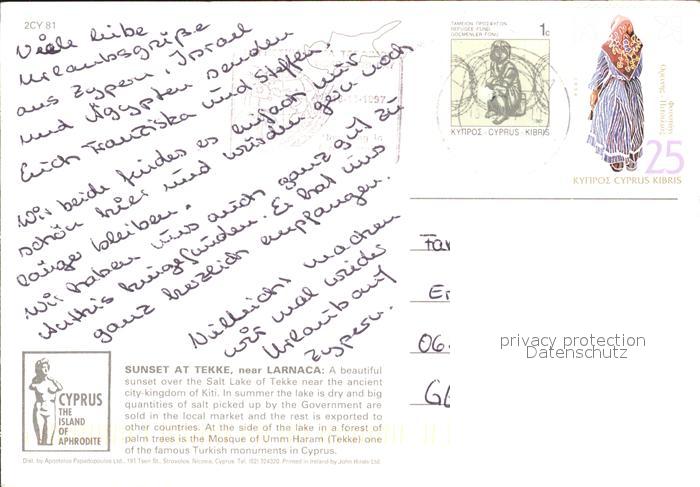 2CY 81
Viele liebe
Urlaubsgrüße
aus Zypern, Israel
und Ägypten senden
Euch Franziska und Steffen.
Wir beide finden es einfach nur
schön hier und würden gern noch
länger bleiben.
Wir haben uns auch ganz gut zu
hingefunden. Er hat uns
ganz herzlich empfangen.
Vielleicht machen
wir mal wieder
Urlaub auf
Zypern.
ΤΑΜΕΙΟΝ ΠΡΟΣΦΥΓΩΝ
REFUGEE FUND
GÖÇMENLER FONU
1c
ΚΥΠΡΟΣ · CYPRUS · KIBRIS
25
ΚΥΠΡΟΣ CYPRUS KIBRIS
1997
Fa
E
06.
G
privacy protection
Datenschutz
CYPRUS
THE
ISLAND
OF
APHRODITE
SUNSET AT TEKKE, near LARNACA: A beautiful
sunset over the Salt Lake of Tekke near the ancient
city-kingdom of Kiti. In summer the lake is dry and big
quantities of salt picked up by the Government are
sold in the local market and the rest is exported to
other countries. At the side of the lake in a forest of
palm trees is the Mosque of Umm Haram (Tekke) one
of the famous Turkish monuments in Cyprus.
Dist. by Apostolos Papadopoulos Ltd., 191 Tseri St., Strovolos, Nicosia, Cyprus. Tel. (02) 324320. Printed in Ireland by John Hinde Ltd.